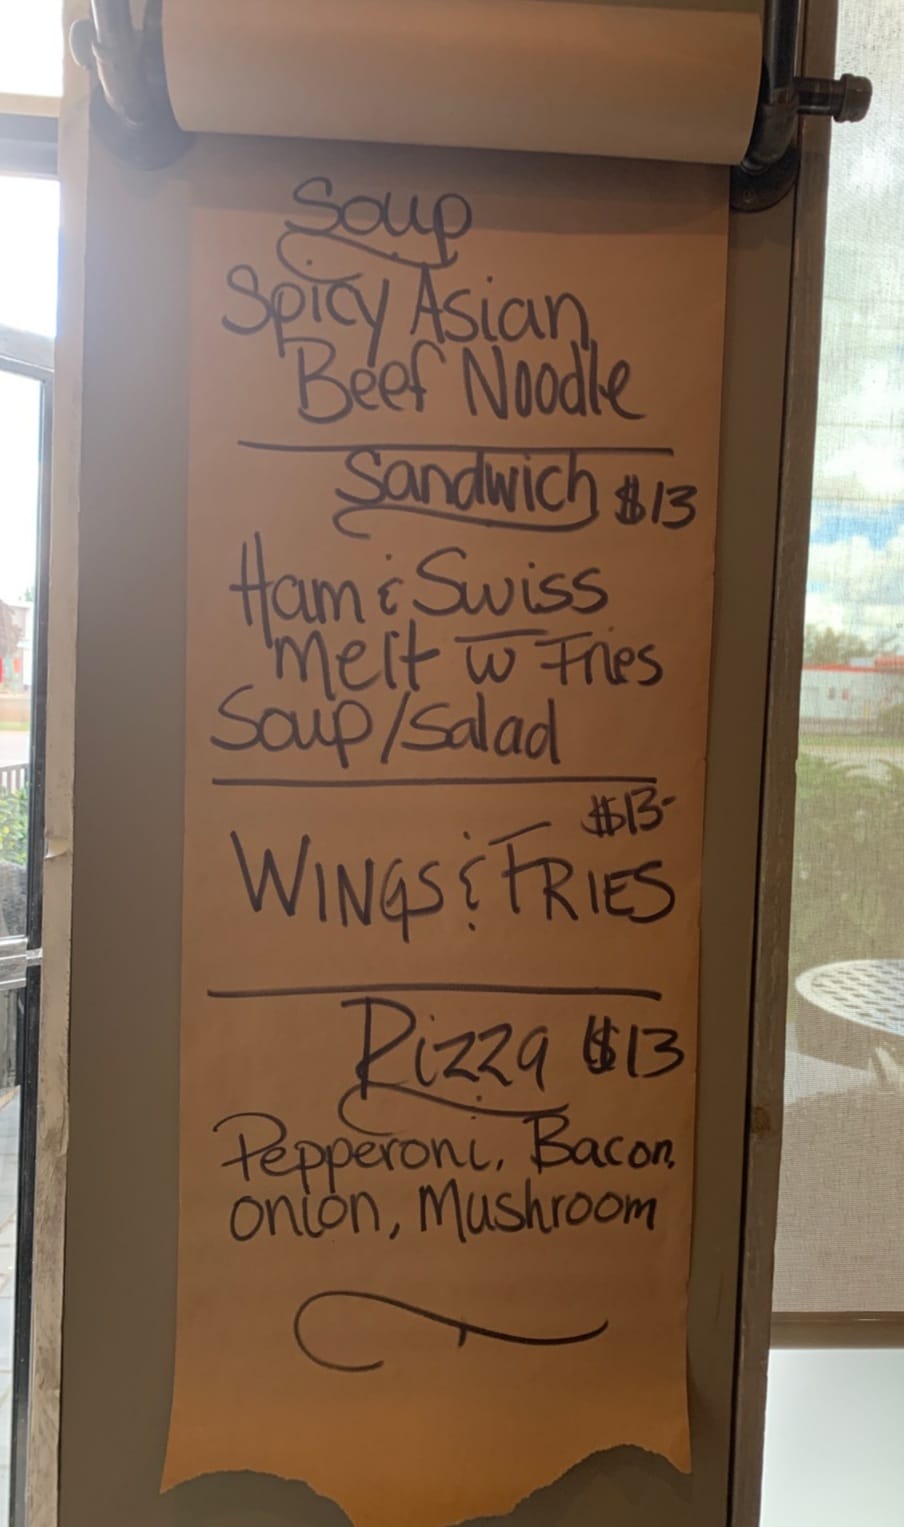 Soup
Spicy Asian
Beef Noodle
Sandwich $13
Ham & Swiss
Melt w Fries
Soup/Salad
$13-
WINGS & FRIES
Pizza $13
Pepperoni, Bacon,
onion, Mushroom